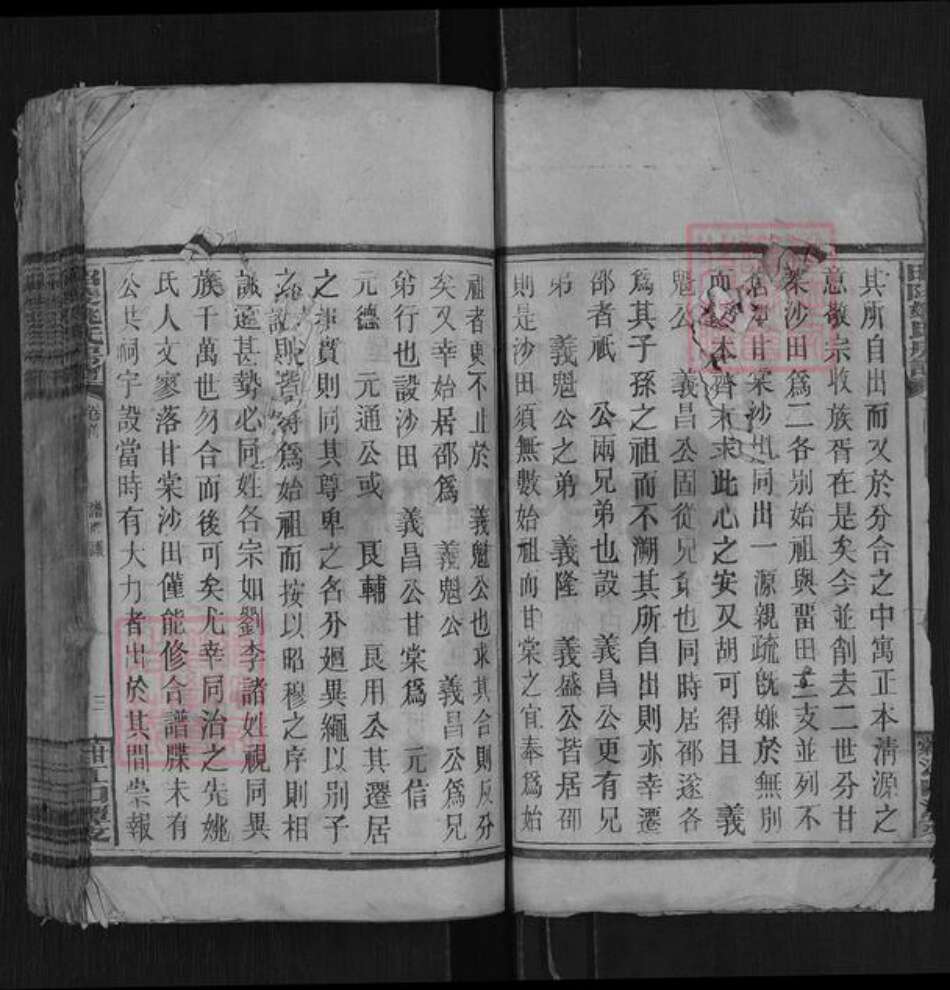 其所自出而又於分合之中寓正本清源之
意敬宗收族胥在是矣今並削去二世分甘
棠沙田為二各別始祖與畱田三支並列不
甘棠沙田同出一源親疏旣嫌於無別
而本齊末求此心之安又胡可得且　義
魁公　義昌公固從兄弟也同時居邵遂各
為其子孫之祖而不溯其所自出則亦幸遷
邵者祇　公兩兄弟也設　義昌公更有兄
弟　義魁公之弟　義隆　義盛公皆居邵
則是沙田須無數始祖而甘棠之宜奉為始
祖者更不止於　義魁公也求其合則反分
矣又幸始居邵為　義魁公　義昌公為兄
弟行也設沙田　義昌公甘棠為　元信
元德　元通公或　艮輔　艮用公其遷居
之事實則同其尊卑之名分迥異繩以別子
之說則皆得為始祖而按以昭穆之序則相
誠遠甚勢必同姓各宗如劉李諸姓視同異
族千萬世勿合而後可矣尤幸同治之先姚
氏人文寥落甘棠沙田僅能修合譜牒未有
公共祠宇設當時有大力者出於其間崇報
卷首
三